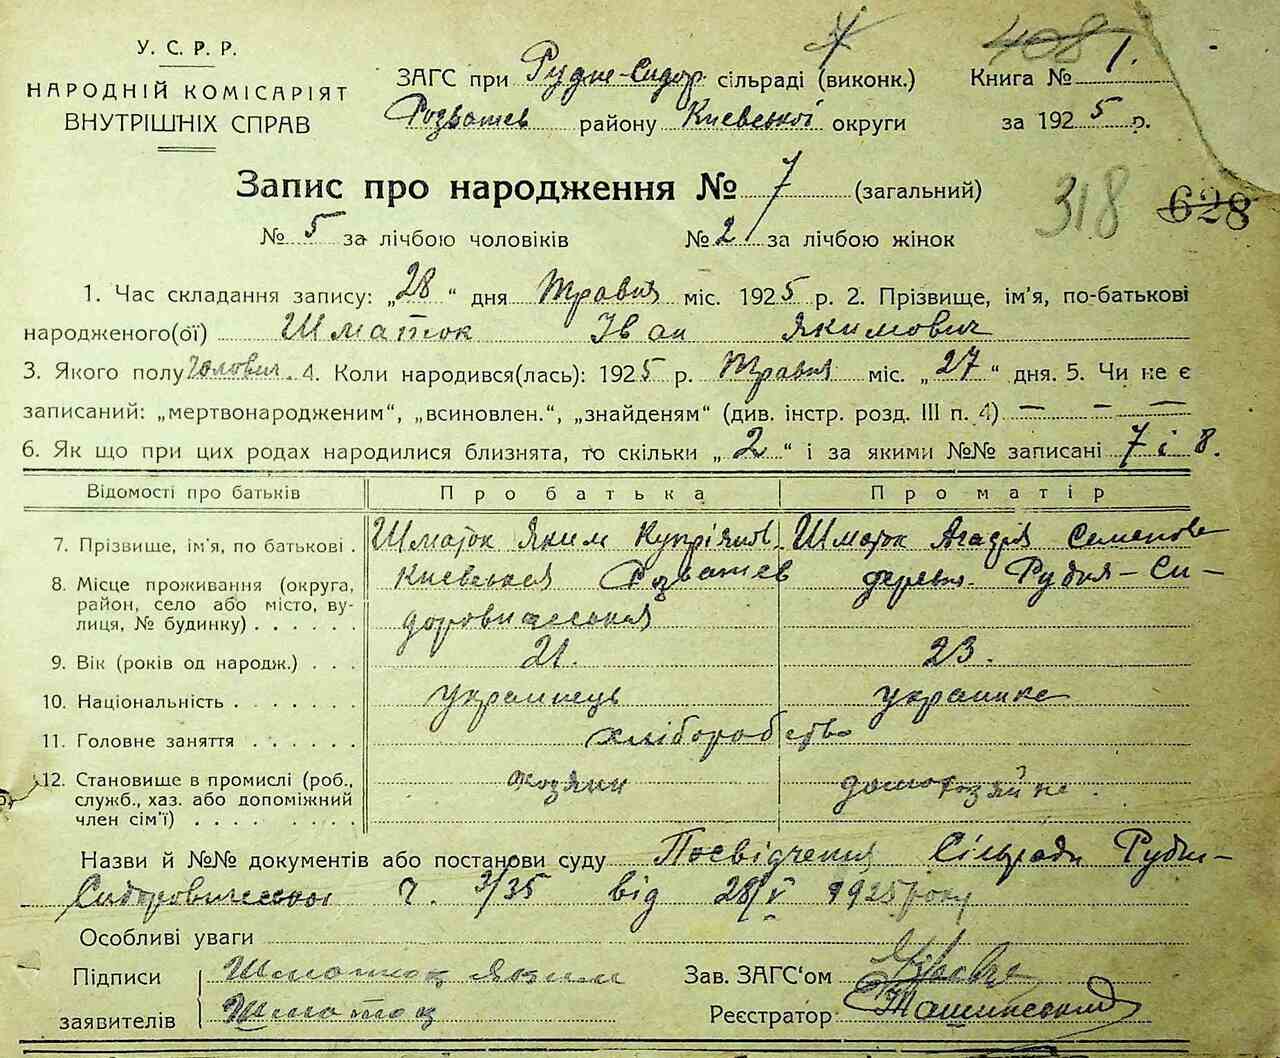 У. С. Р. Р.
НАРОДНІЙ КОМІСАРІЯТ
ВНУТРІШНІХ СПРАВ
ЗАГС при Рудне-Сидор сільраді (виконк.)
Розважев району Киевської округи
4081
Книга № 1.
за 1925 р.
Запис про народження № 7 (загальний)
318 628
№ 5 за лічбою чоловіків № 2 за лічбою жінок
1. Час складання запису: „28“ дня Травня міс. 1925 р. 2. Прізвище, ім'я, по-батькові
народженого(ої) Шматок Іван Якимович
3. Якого полу Чоловіч. 4. Коли народився(лась): 1925 р. Травня міс. „27“ дня. 5. Чи не є
записаний: „мертвонародженим“, „всиновлен.“, „знайденям“ (див. інстр. розд. III п. 4) — — —
6. Як що при цих родах народилися близнята, то скільки „2“ і за якими №№ записані 7 і 8.
Відомості про батьків Про батька Про матір
7. Прізвище, ім'я, по батькові . Шматок Яким Купріянов. Шматок Агафія Семенова
8. Місце проживання (округа, Киевськая Розважев деревня Рудня-Си-
район, село або місто, ву- доровическая
лиця, № будинку) . . . . . .
9. Вік (років од народж.) . . . 21. 23.
10. Національність . . . . . . . украинець украинка
11. Головне заняття . . . . . . хліборобство
12. Становище в промислі (роб., хозяин домохозяйка.
служб., хаз. або допоміжний
член сім'ї) . . . . . . . . .
Назви й №№ документів або постанови суду Посвідчення Сільради Рудни-
Сидоровической Ч. 3/35 від 28/V 1925 року
Особливі уваги
Підписи Шматок Яким Зав. ЗАГС'ом
заявителів Шматок Реєстратор